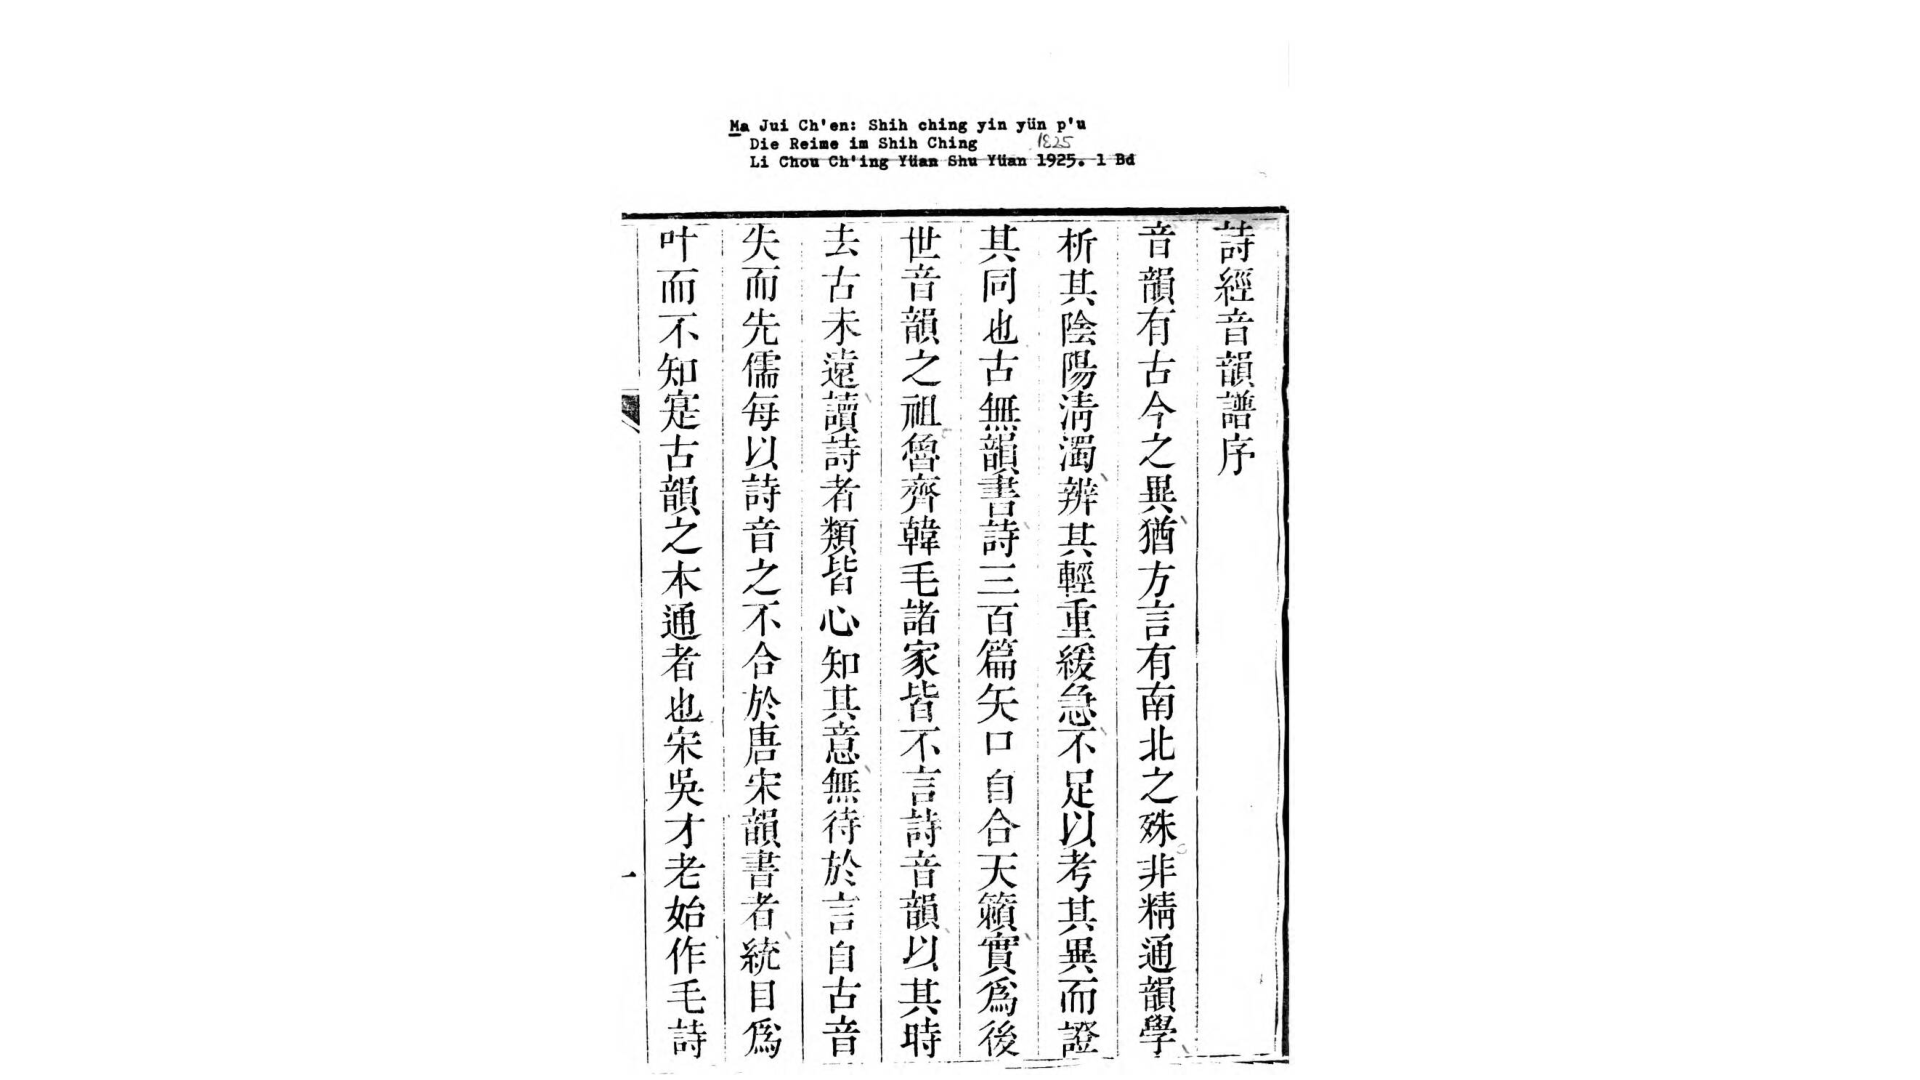 Ma Jui Ch'en: Shih ching yin yün p'u
Die Reime im Shih Ching 1825
Li Chou Ch'ing Yüan Shu Yüan 1925. 1 Bd
詩經音韻譜序
音韻有古今之異猶方言有南北之殊非精通韻學
析其陰陽淸濁辨其輕重緩急不足以考其異而證
其同也古無韻書詩三百篇矢口自合天籟實爲後
世音韻之祖魯齊韓毛諸家皆不言詩音韻以其時
去古未遠讀詩者類皆心知其意無待於言自古音
失而先儒每以詩音之不合於唐宋韻書者統目爲
叶而不知寔古韻之本通者也宋吳才老始作毛詩
一